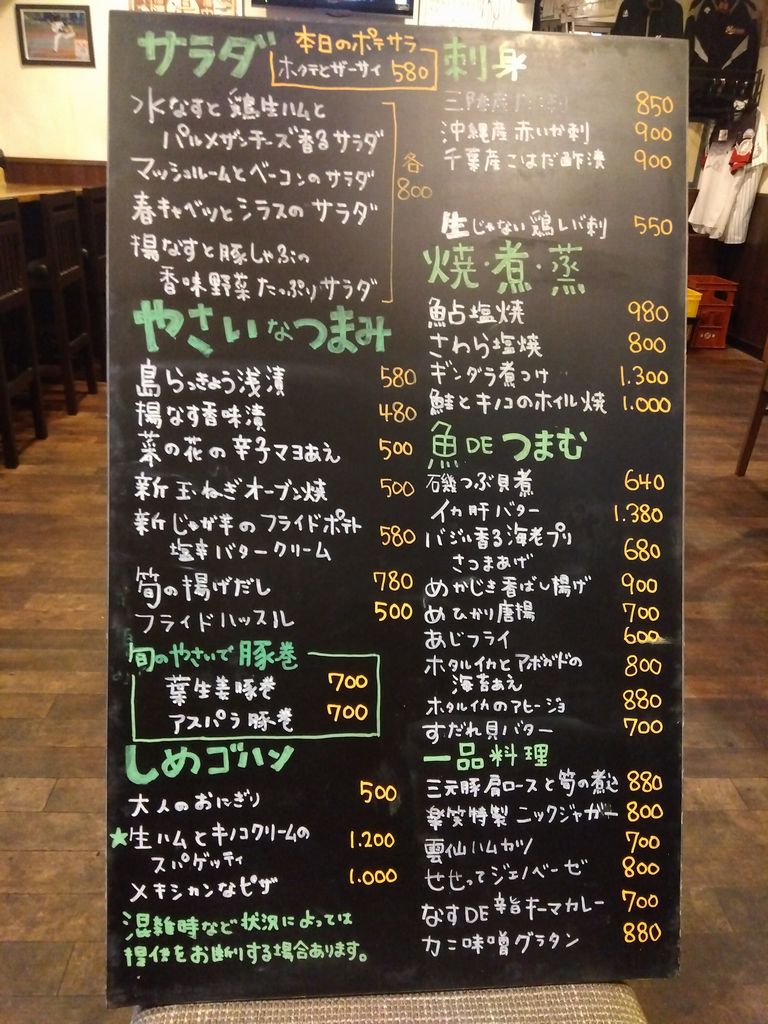 サラダ
本日のポテサラ
ホタテとザーサイ 580
水なすと鶏生ハムと
パルメザンチーズ香るサラダ
マッシュルームとベーコンのサラダ
春キャベツとシラスのサラダ
揚なすと豚しゃぶの
香味野菜たっぷりサラダ
各
800
やさいなつまみ
島らっきょう浅漬 580
揚なす香味漬 480
菜の花の辛子マヨあえ 500
新玉ねぎオーブン焼 500
新じゃが芋のフライドポテト
塩辛バタークリーム 580
筍の揚げだし 780
フライドハッスル 500
旬のやさいで豚巻
葉生姜豚巻 700
アスパラ豚巻 700
しめゴハン
大人のおにぎり 500
★生ハムとキノコクリームの
スパゲッティ 1.200
メキシカンなピザ 1.000
混雑時など状況によっては
提供をお断りする場合あります。
刺身
三陸産 刺 850
沖縄産赤いか刺 900
千葉産こはだ酢漬 900
生じゃない鶏レバ刺 550
焼・煮・蒸
鮎塩焼 980
さわら塩焼 800
ギンダラ煮つけ 1.300
鮭とキノコのホイル焼 1.000
魚DEつまむ
磯つぶ貝煮 640
イカ肝バター 1.380
バジル香る海老プリ
さつまあげ 680
めかじき香ばし揚げ 900
めひかり唐揚 700
あじフライ 600
ホタルイカとアボガドの
海苔あえ 800
ホタルイカのアヒージョ 880
すだれ貝バター 700
一品料理
三元豚肩ロースと筍の煮込 880
楽笑特製ニックジャガー 800
雲仙ハムカツ 700
せせってジェノベーゼ 800
なすDE辛旨キーマカレー 700
カニ味噌グラタン 880